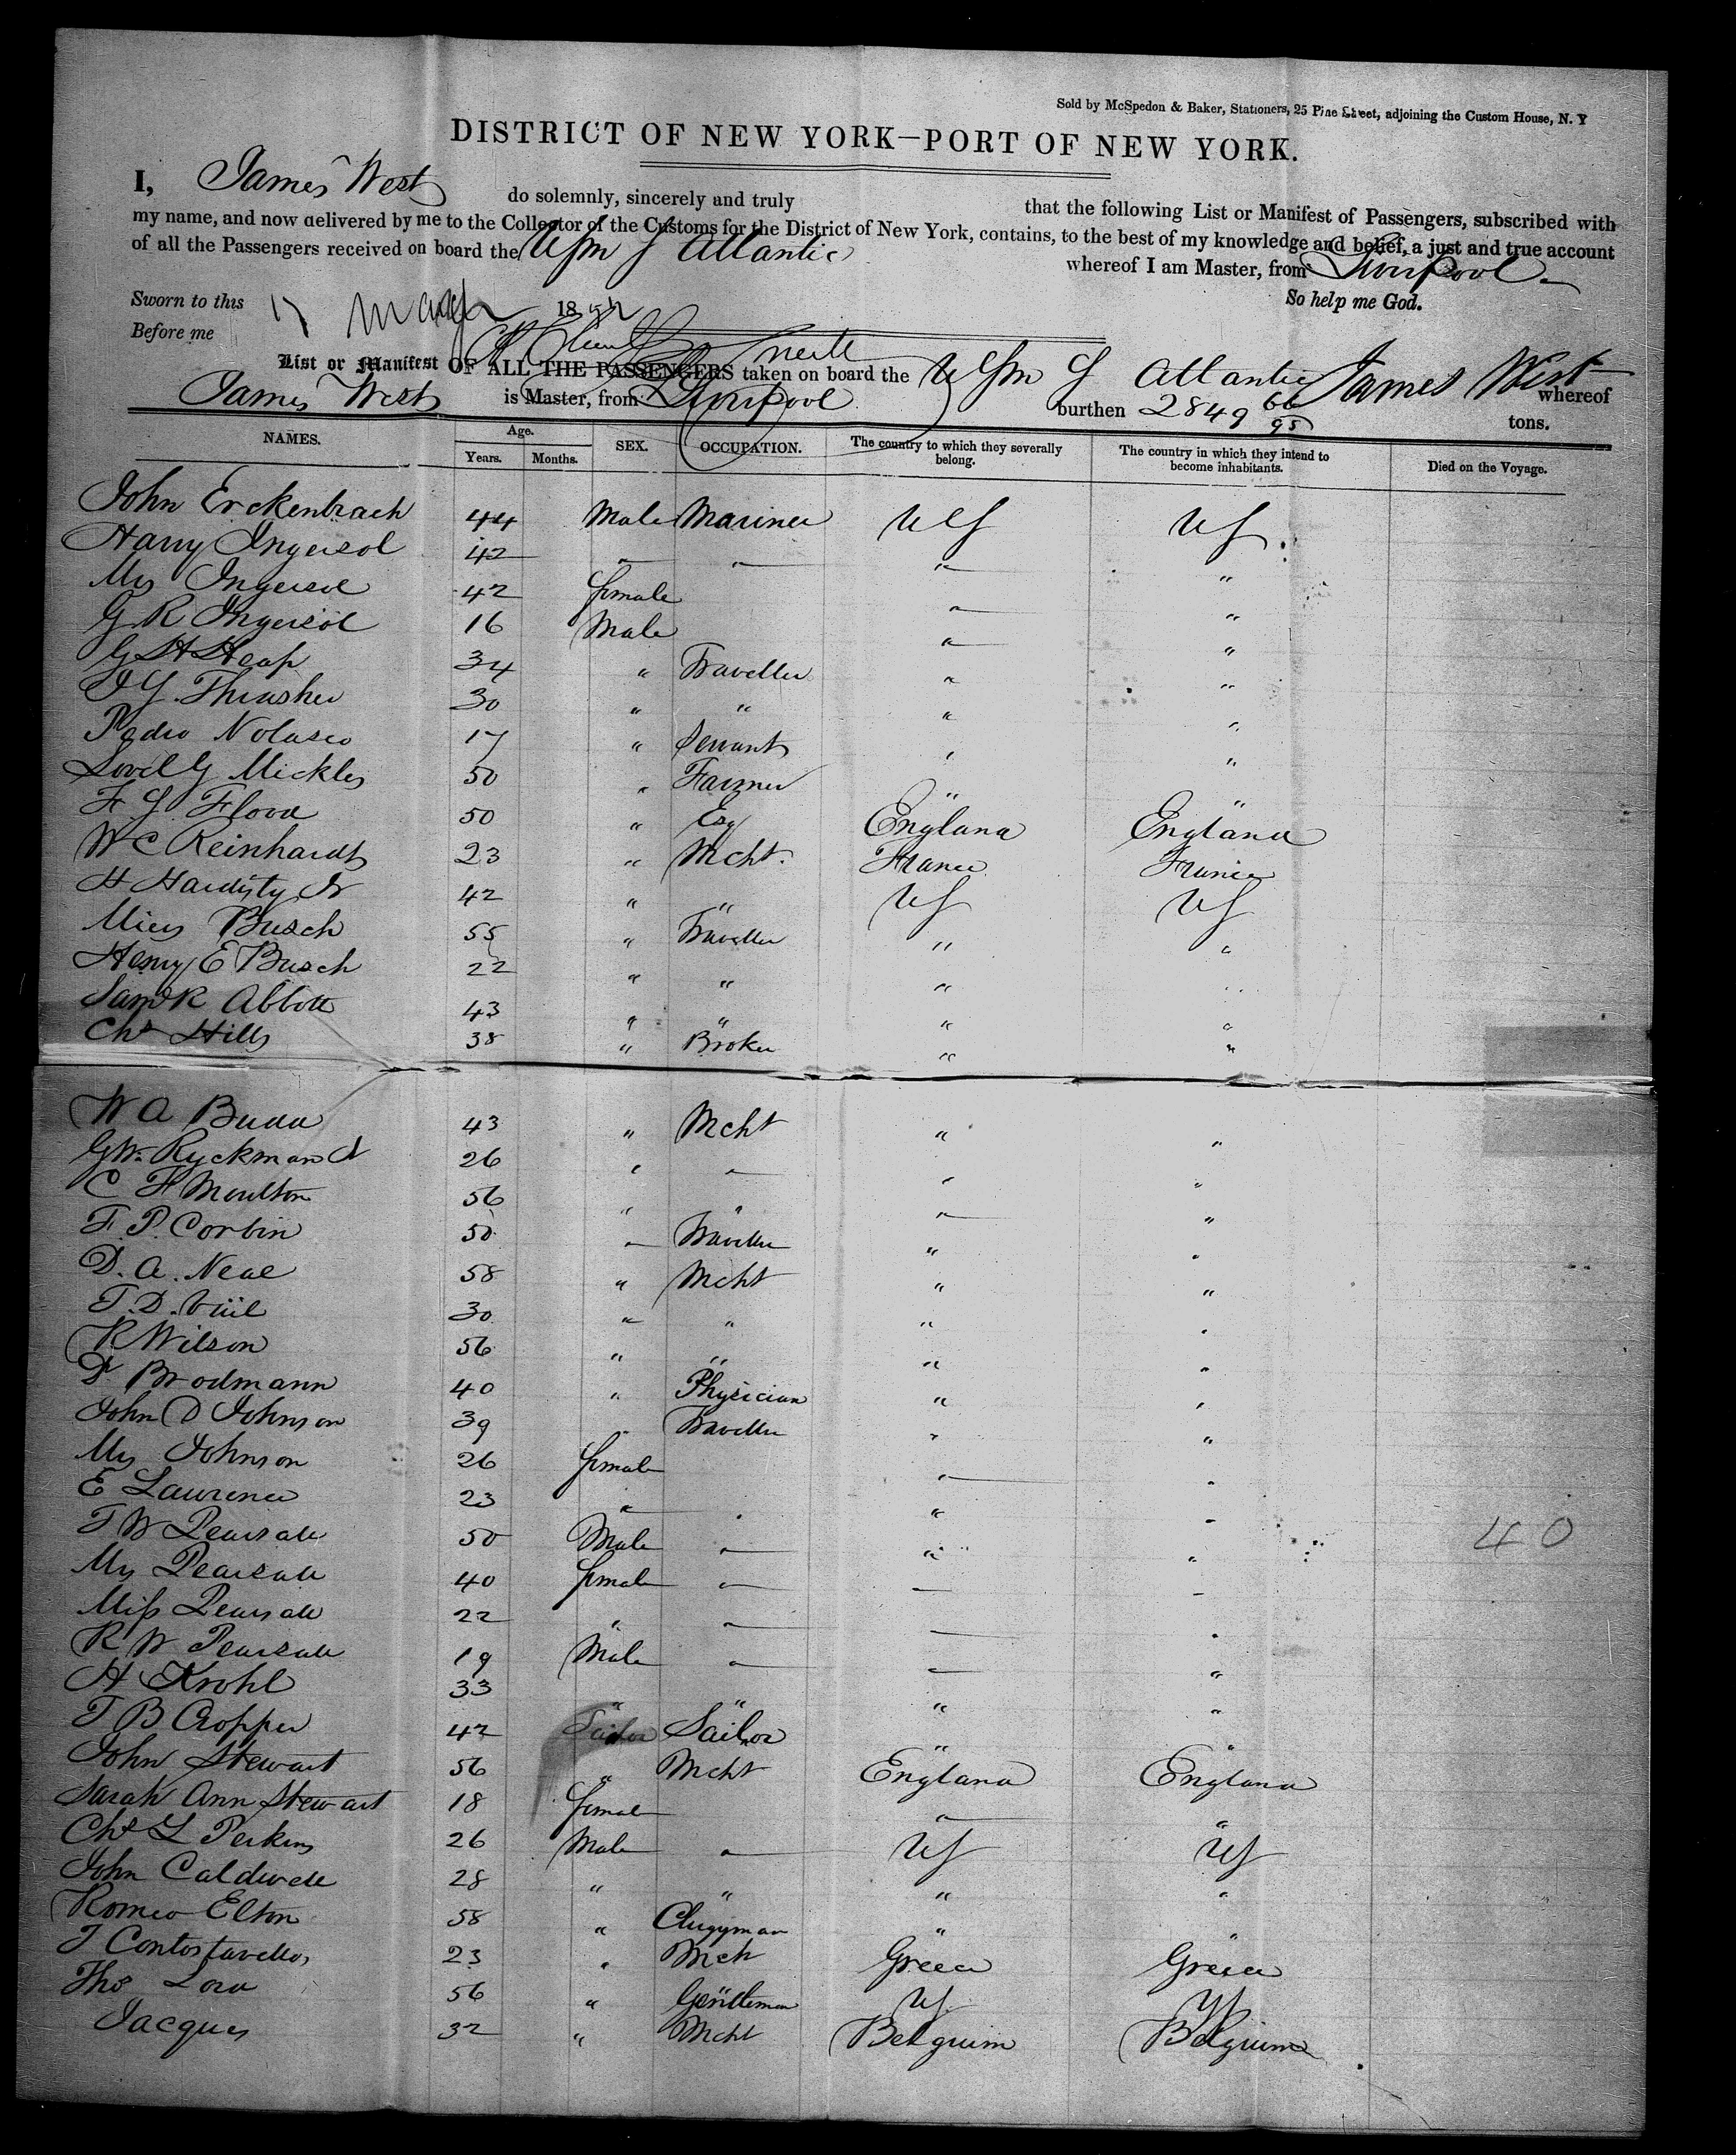 Sold by McSpedon & Baker, Stationers, 25 Pine Street, adjoining the Custom House, N. Y
DISTRICT OF NEW YORK—PORT OF NEW YORK.
I, James West do solemnly, sincerely and truly that the following List or Manifest of Passengers, subscribed with
my name, and now delivered by me to the Collector of the Customs for the District of New York, contains, to the best of my knowledge and belief, a just and true account
of all the Passengers received on board the Atlantic whereof I am Master, from Liverpool.
So help me God.
Sworn to this 17 March 185
Before me
List or Manifest OF ALL THE PASSENGERS taken on board the Atlantic James West whereof
James West is Master, from Liverpool burthen 2849 66/95 tons.
NAMES. Age. Years. Months. SEX. OCCUPATION. The country to which they severally belong. The country in which they intend to become inhabitants. Died on the Voyage.
John Erckenbrach 44 Male Mariner US US
Harry Ingersol 42 " " " "
Mrs Ingersol 42 female " "
G R Ingersol 16 Male " "
G H Heap 34 " Traveller " "
Thrasher 30 " " " "
Pedro Nolasco 17 " Servant " "
Mickles 50 " Farmer " "
F. Flood 50 " Esq England England
W C Reinhardt 23 " Mcht. France France
H Hardisty Jr 42 " " US US
Busch 55 " Traveller " "
Henry E Busch 22 " " " "
Saml R Abbott 43 " " " "
Chs Hills 38 " Broker " "
W A Budd 43 " Mcht " "
G W Ryckman Jr 26 " " " "
C F Moulton 56 " " " "
F. P. Corbin 50 " Traveller " "
D. A. Neal 58 " Mcht " "
T. D. 30 " " " "
R Wilson 56 " " " "
Dr Brodmann 40 " Physician " "
John D Johnson 39 " Traveller " "
Mrs Johnson 26 female " "
E Lawrence 23 " " " "
T W Pearsall 50 Male " " "
Mrs Pearsall 40 female " " "
Miss Pearsall 22 " " " "
R W Pearsall 19 Male " " "
H Krohl 33 " " " "
T B Cropper 42 Sailor Sailor " "
John Stewart 56 " Mcht England England
Sarah Ann Stewart 18 female " "
Chs L Perkins 26 Male " US US
John Caldwell 28 " " " "
Romeo Elton 58 " Clergyman " "
J Contostavlos 23 " Mch Greece Greece
Thos Lord 56 " Gentleman US US
Jacques 32 " Mcht Belgium Belgium
40